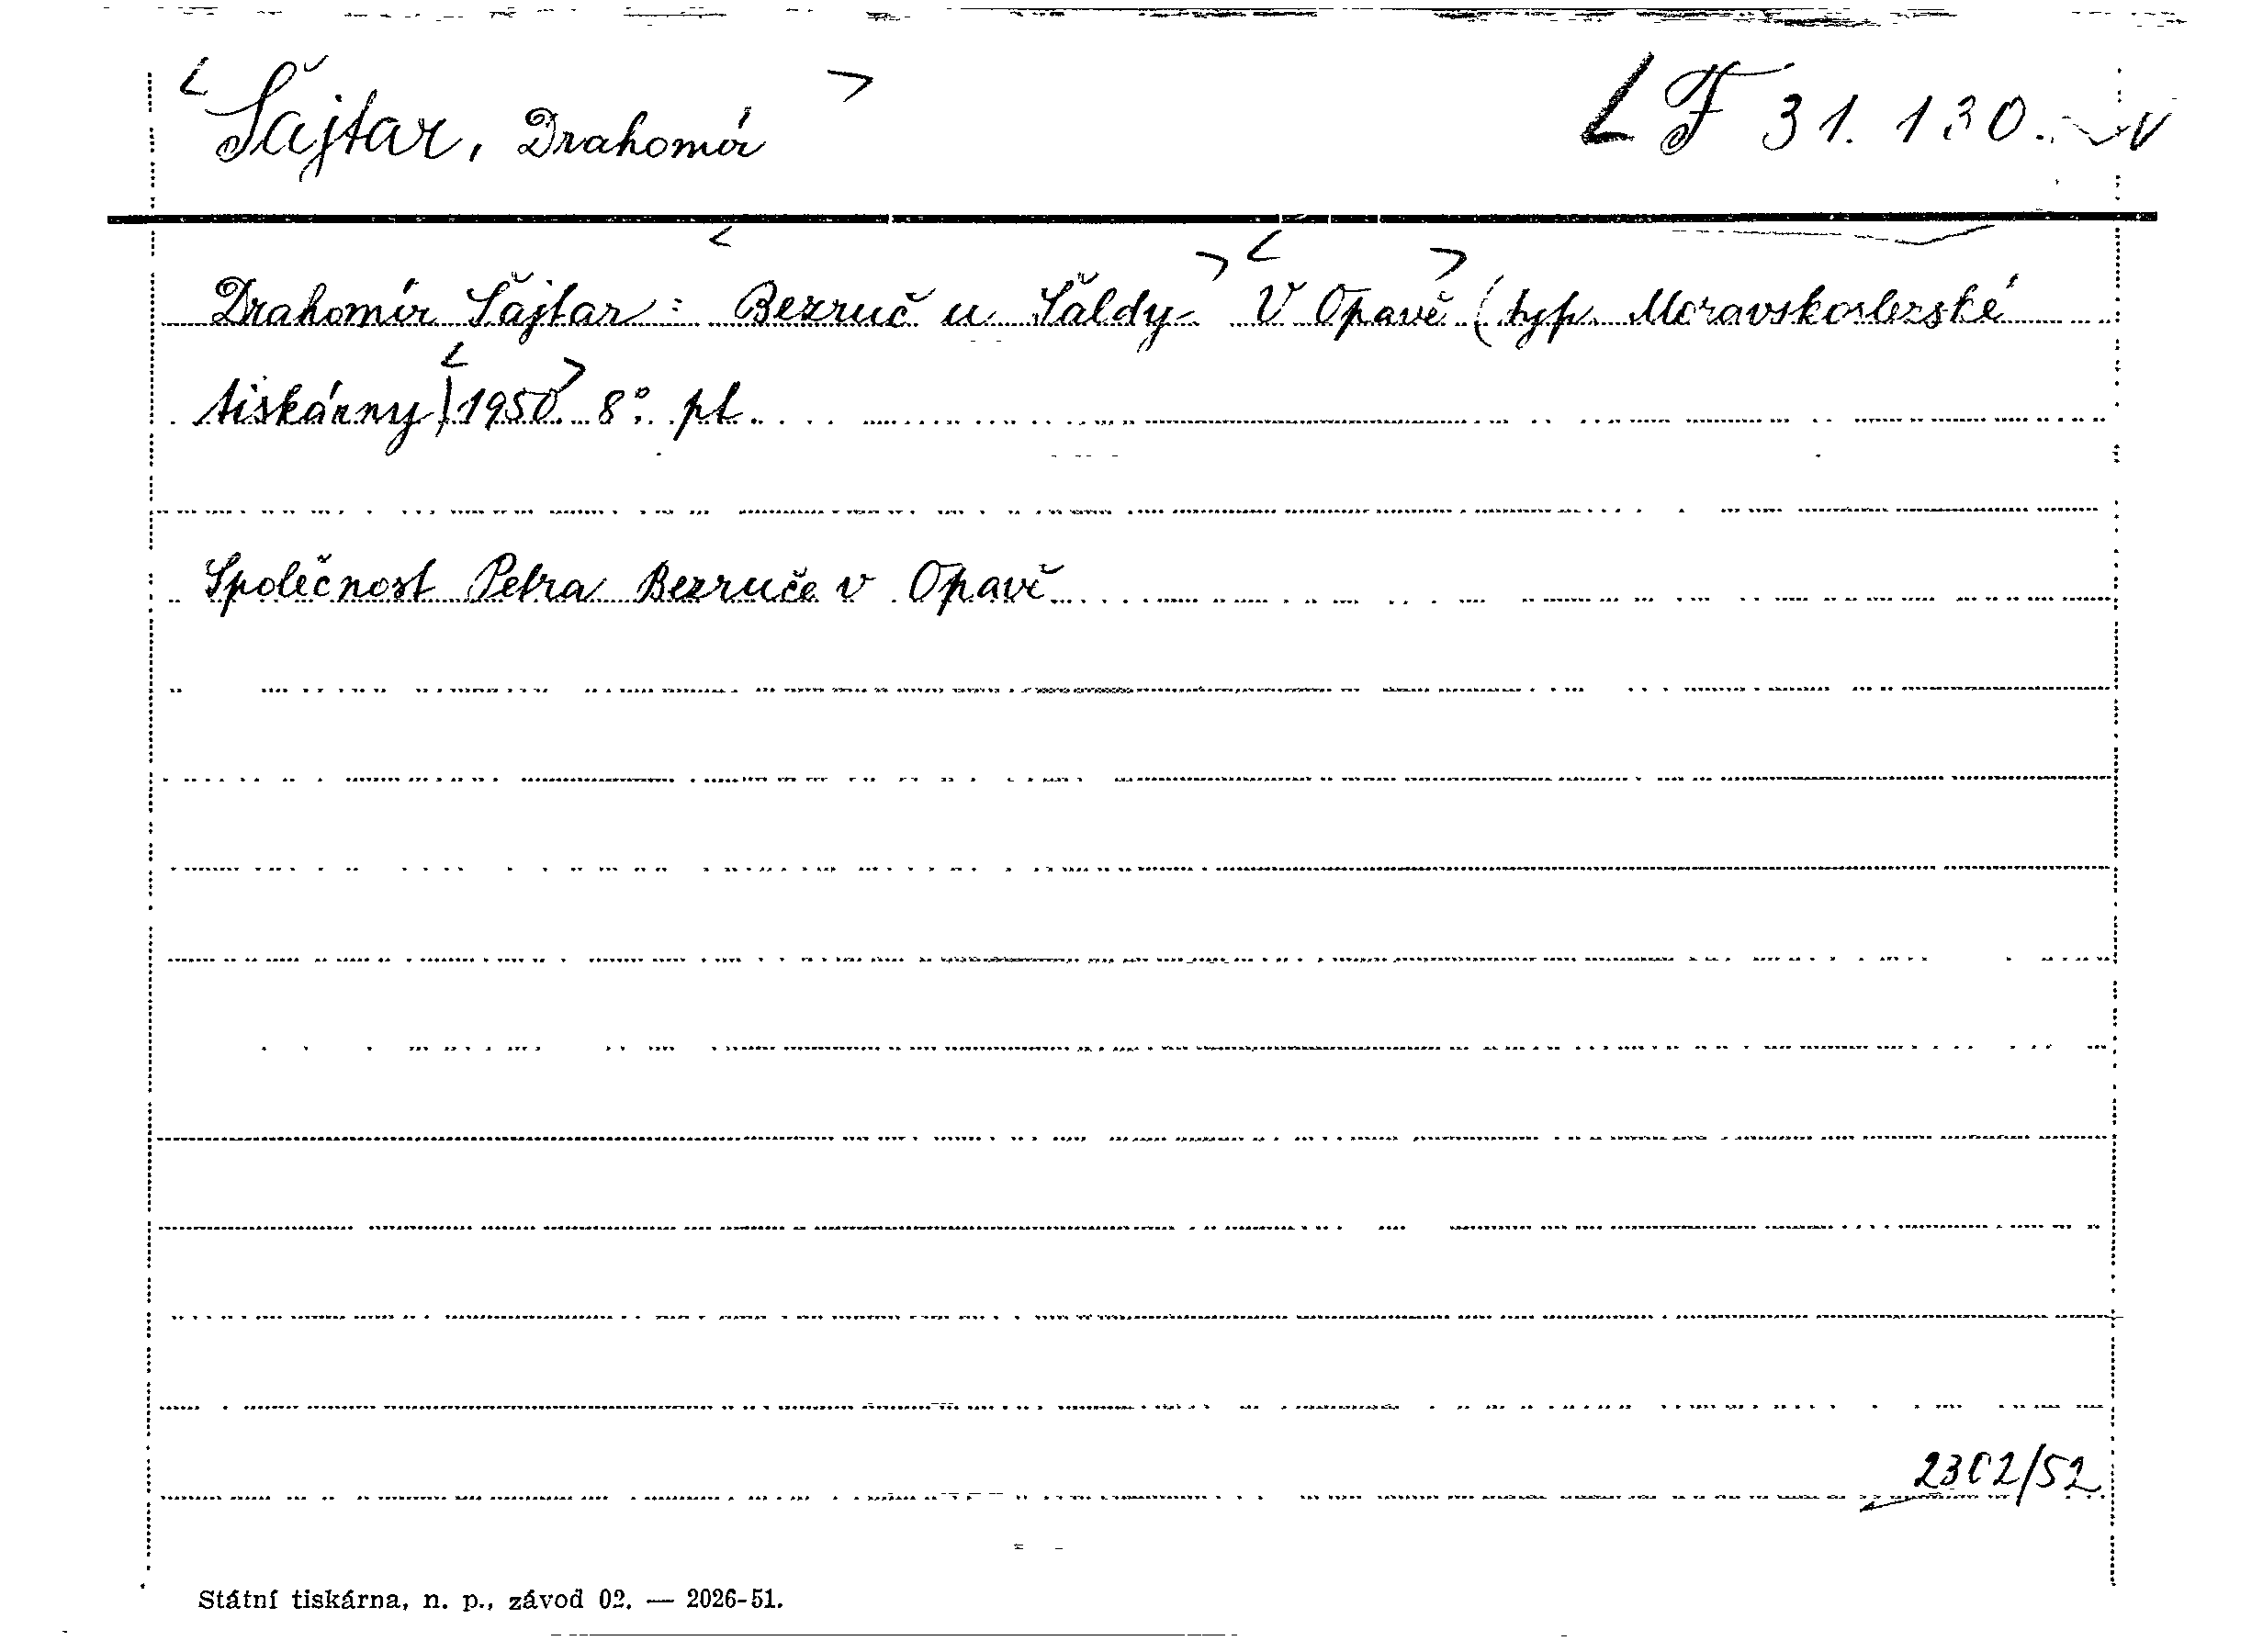 <Šajtar, Drahomír> LF 31.130. V
Drahomír Šajtar: <Bezruč u Šaldy> <V Opavě> (typ. Moravskoslezské
tiskárny) <1950> 8° pt.
Společnost Petra Bezruče v Opavě
2302/52
Státní tiskárna, n. p., závod 02. — 2026-51.